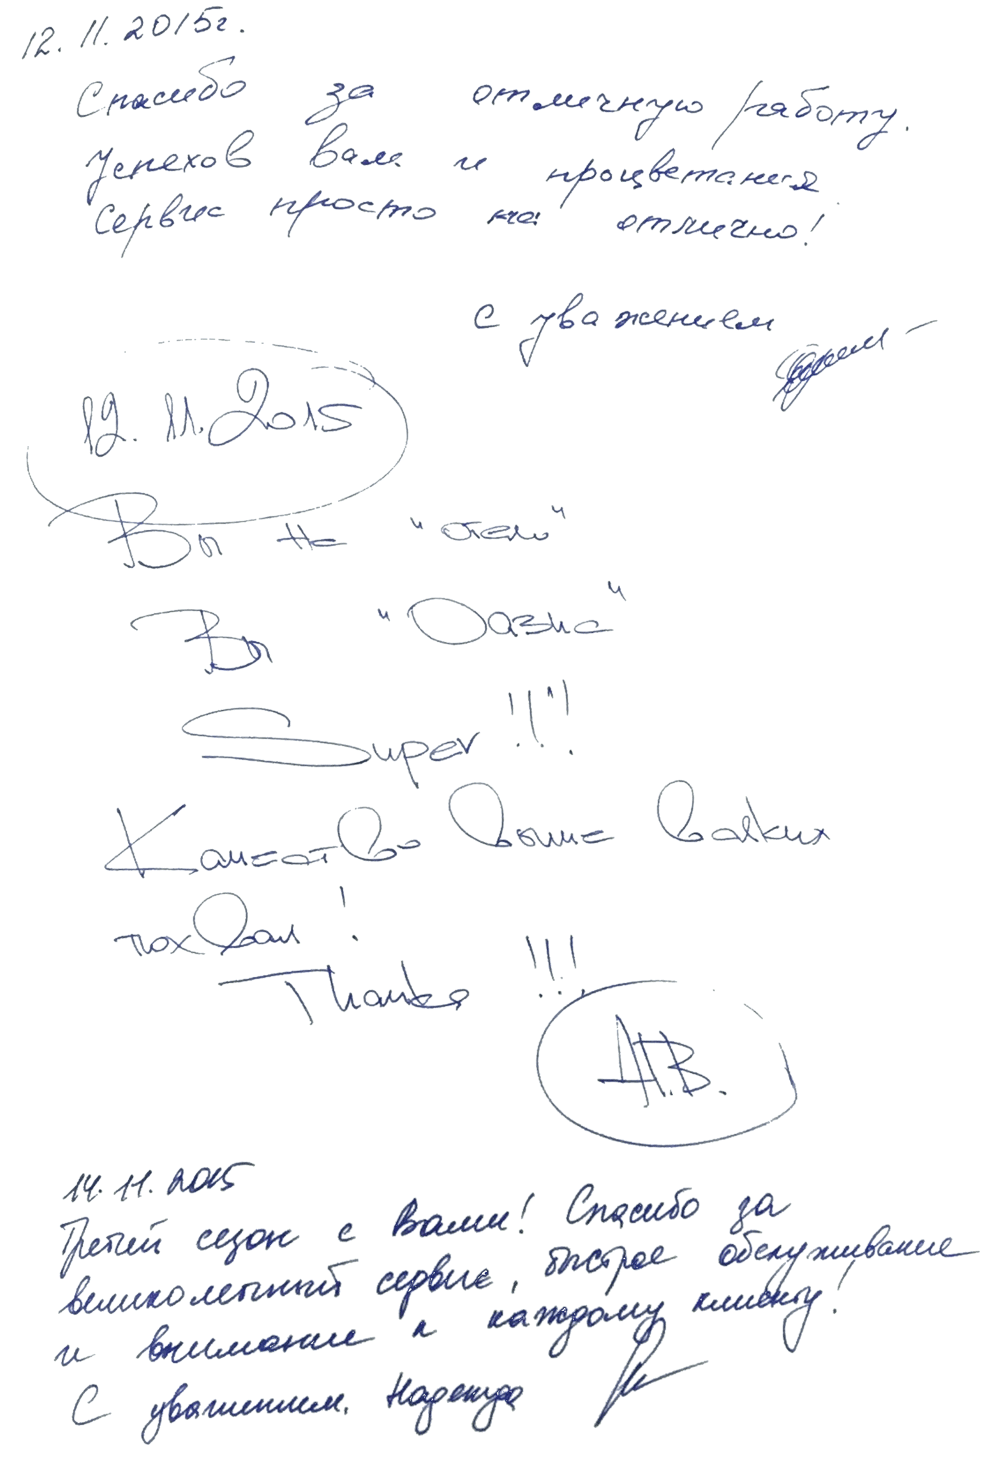 12.11.2015г.
Спасибо за отличную работу.
Успехов вам и процветания
Сервис просто на отлично!
с уважением
12.11.2015
Вы не "отель"
Вы "Оазис"
Super!!!
Качество выше всяких
похвал!
Thanks!!!
А.В.
14.11.2015
Третий сезон с Вами! Спасибо за
великолепный сервис, быстрое обслуживание
и внимание к каждому клиенту!
С уважением, Надежда